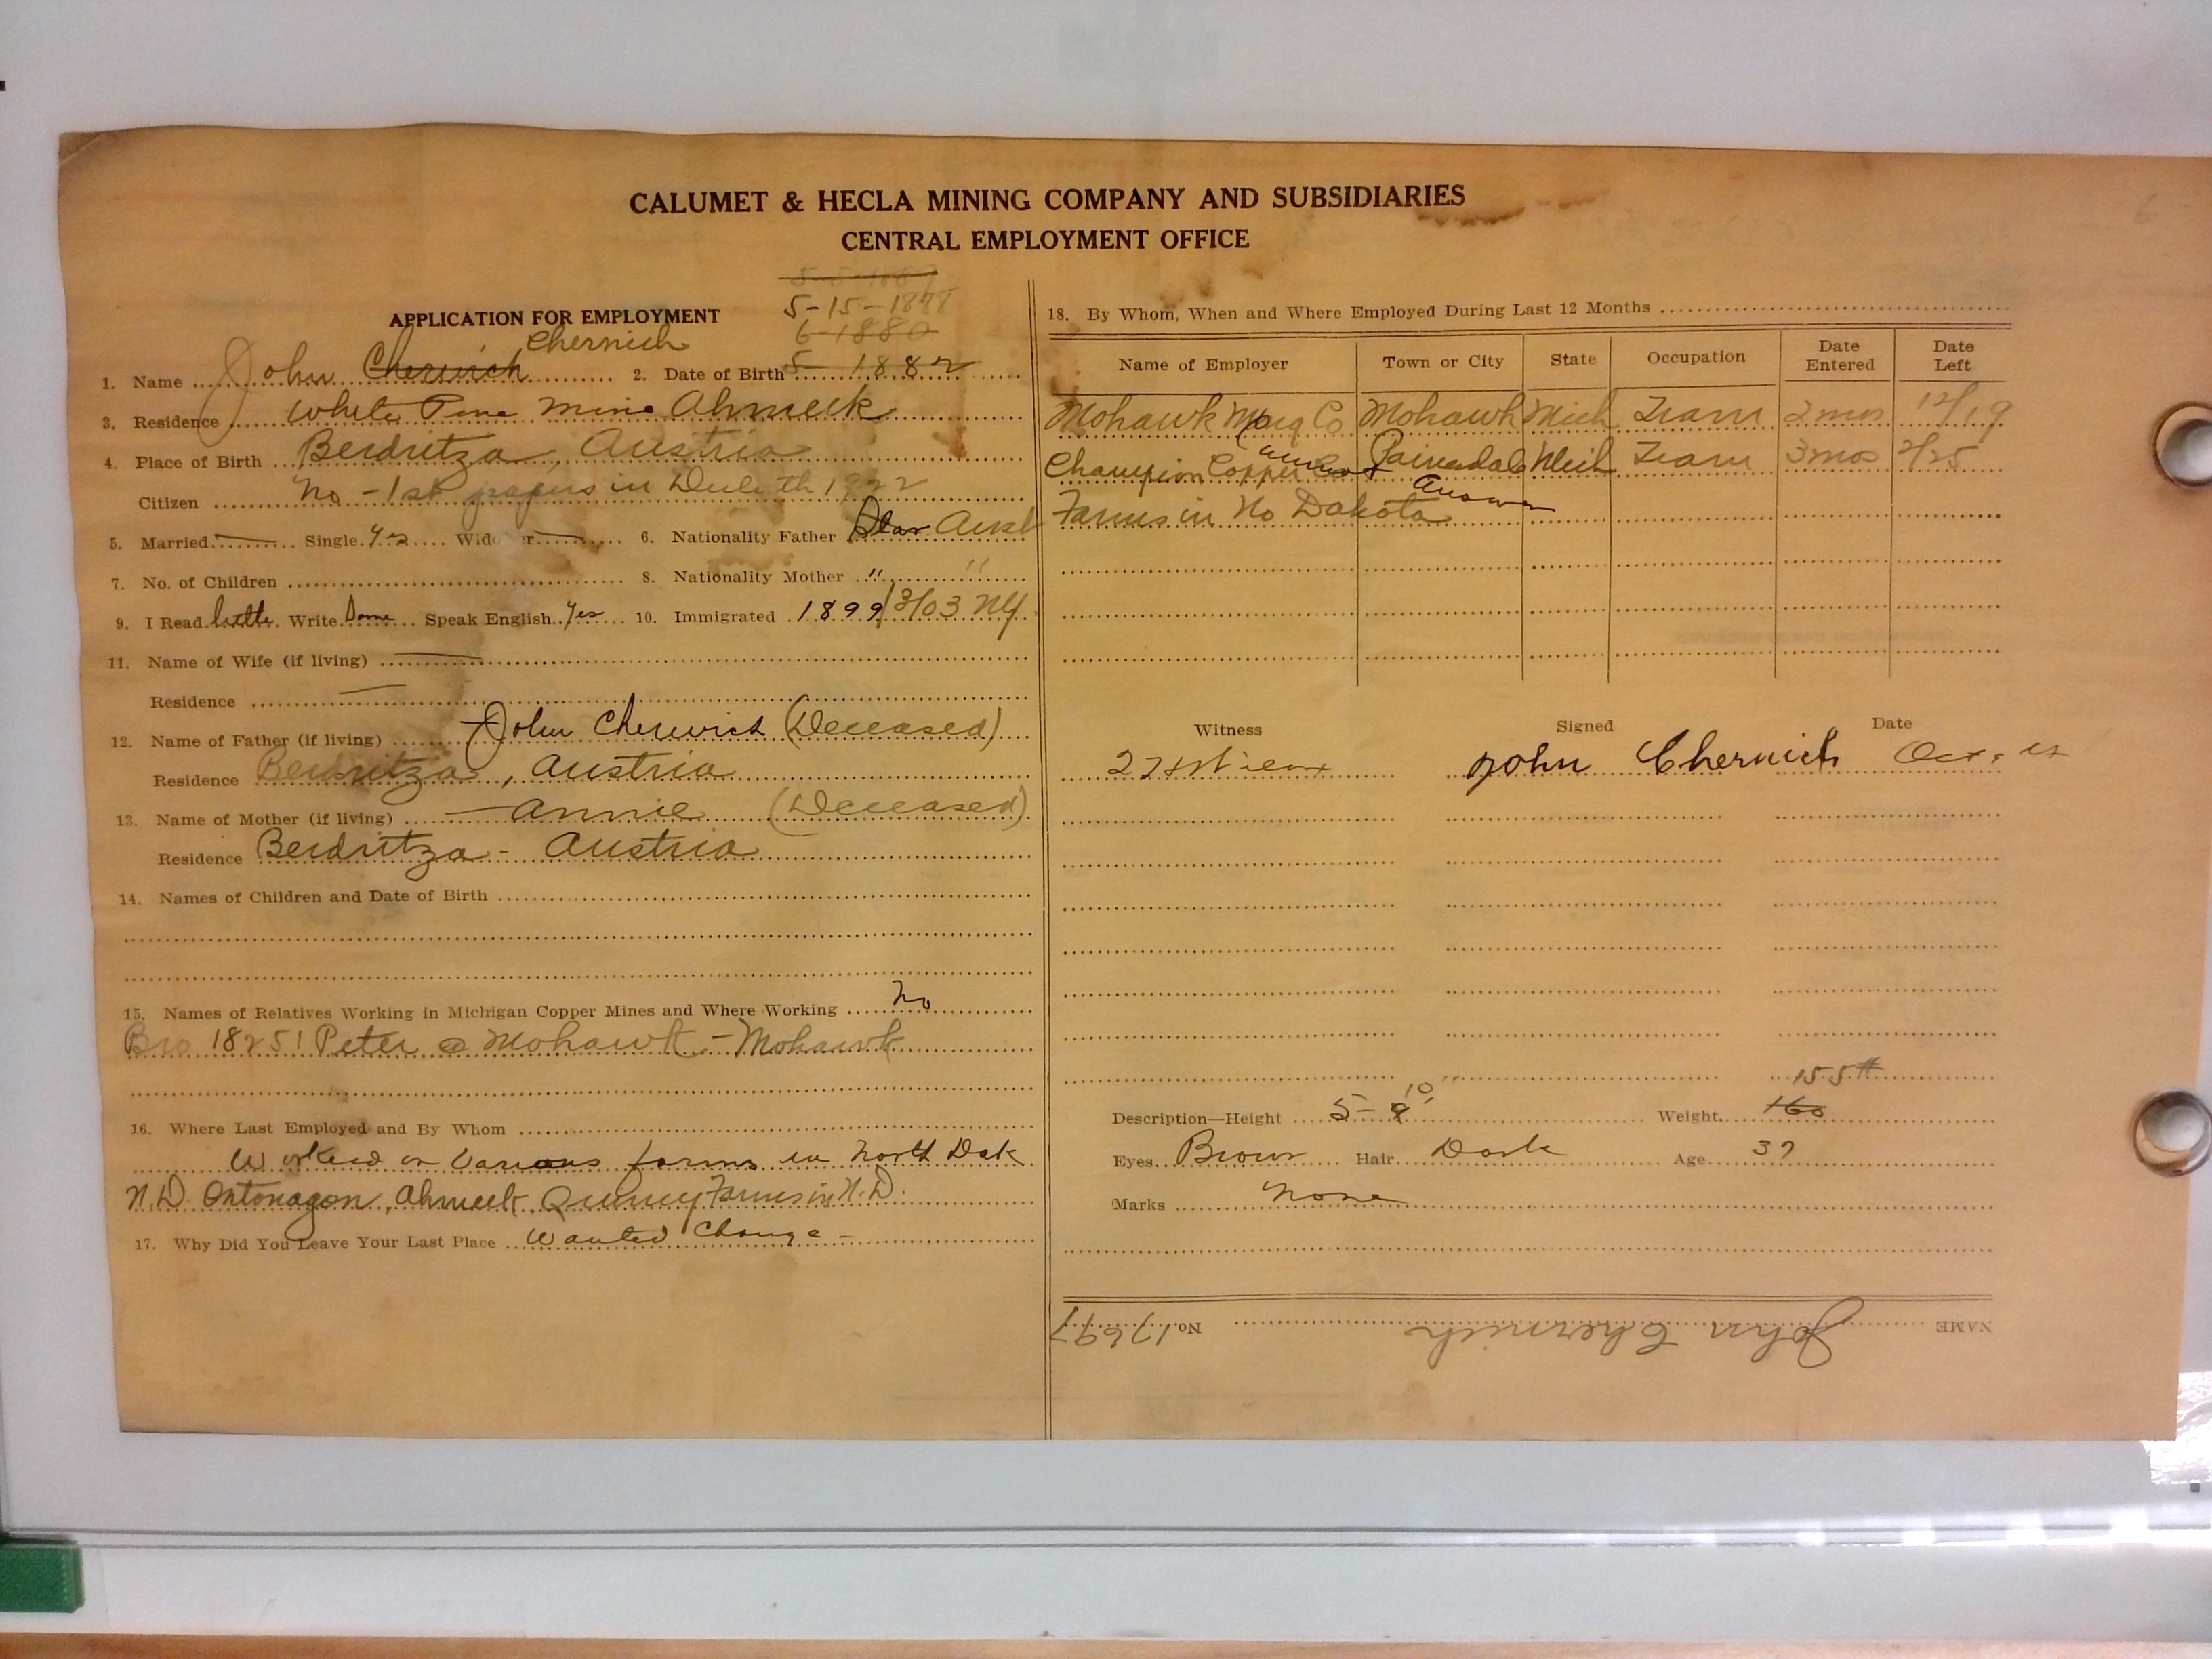 CALUMET & HECLA MINING COMPANY AND SUBSIDIARIES
CENTRAL EMPLOYMENT OFFICE
5-15-1878
APPLICATION FOR EMPLOYMENT
6-1880
Chernich
1. Name John Cherwich 2. Date of Birth 5- 1882
3. Residence White Pine Mine Ahmeek
4. Place of Birth Beidritza, Austria
Citizen No - 1st papers in Duluth 1922
5. Married Single Yes Widower 6. Nationality Father Slav Aust
7. No. of Children 8. Nationality Mother " "
9. I Read little Write Some Speak English Yes 10. Immigrated 1899 / 3/03 NY
11. Name of Wife (if living)
Residence
12. Name of Father (if living) John Cherwich (Deceased)
Residence Beidritza, Austria
13. Name of Mother (if living) Annie (Deceased)
Residence Beidritza - Austria
14. Names of Children and Date of Birth
15. Names of Relatives Working in Michigan Copper Mines and Where Working No
Bro 18251 Peter @ Mohawk - Mohawk
16. Where Last Employed and By Whom
Worked on Various farms in North Dak
N.D. Ontonagon, Ahmeek, Quincy Farms in N.D.
17. Why Did You Leave Your Last Place Wanted Change -
18. By Whom, When and Where Employed During Last 12 Months
Name of Employer Town or City State Occupation Date Entered Date Left
Mohawk Mng Co Mohawk Mich Tram 2 mos 12/19
Champion Copper Co Painesdale Mich Tram 3 mos 2/25
Farms in No Dakota
Witness Signed Date
John Chernich Oct.
155#
10"
Description—Height 5-9 Weight 160
Eyes Brown Hair Dark Age 37
Marks None
NAME John Chernich No. 17697